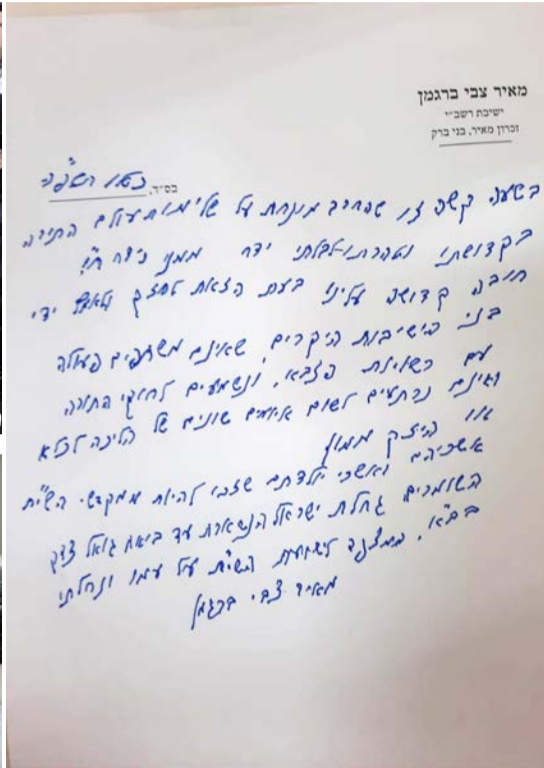 מאיר צבי ברגמן
ישיבת רשב״י
זכרון מאיר, בני ברק
בס״ד,
בשעה קשה זו שהחרב מונחת על שלימות עולם התורה
בקדושתו וטהרתו לבלתי ידח ממנו נידח ח״ו
חובה קדושה עלינו בעת הזאת לחזק ולאמץ ידי
בני הישיבות היקרים, שאינם משתפים פעולה
עם רשויות הצבא, ונשמעים לחוקי התורה
ואינם נרתעים לשום איומים שונים של הליכה לכלא
או היזק ממון
אשריהם ואשרי יולדתם שזכו להיות ממקדשי השי״ת
השומרים גחלת ישראל הנשארת עד ביאת גואל צדק
בב״א. המצפה לישועת השי״ת על עמו ונחלתו
מאיר צבי ברגמן